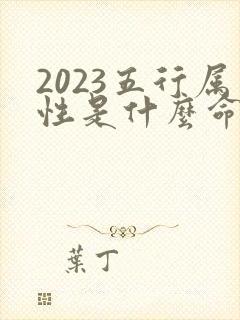 2023五行属
性是什麼命
葉丁